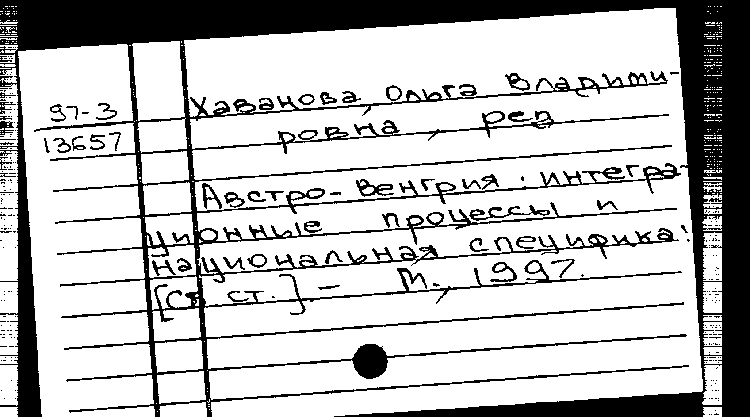 97-3
13657
Хаванова, Ольга Владими-
ровна, ред
Австро-Венгрия: интегра-
ционные процессы и
национальная специфика:
[Сб. ст.]. - М., 1997.